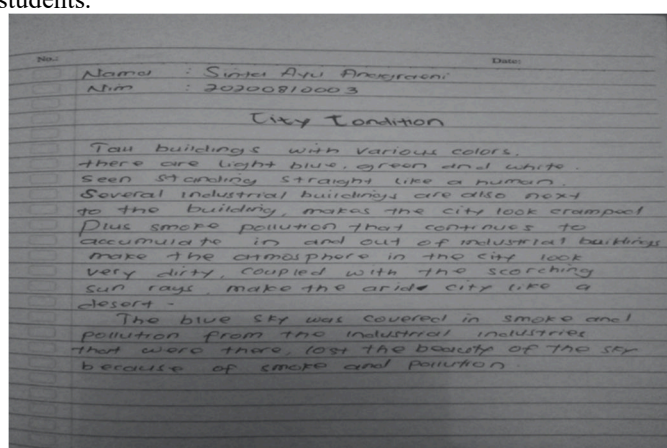 students.
No.:
Date:
Nama : Sinta Ayu Anggraeni
Nim : 20200810003
City Condition
Tall buildings with various colors.
there are light blue, green and white.
seen standing straight like a human.
Several industrial buildings are also next
to the building, makes the city look cramped
Plus smoke pollution that continues to
accumulate in and out of industrial buildings
make the atmosphere in the city look
very dirty, coupled with the scorching
sun rays, make the arid city like a
desert.
The blue sky was covered in smoke and
pollution from the industrial industries
that were there, lost the beauty of the sky
because of smoke and pollution.